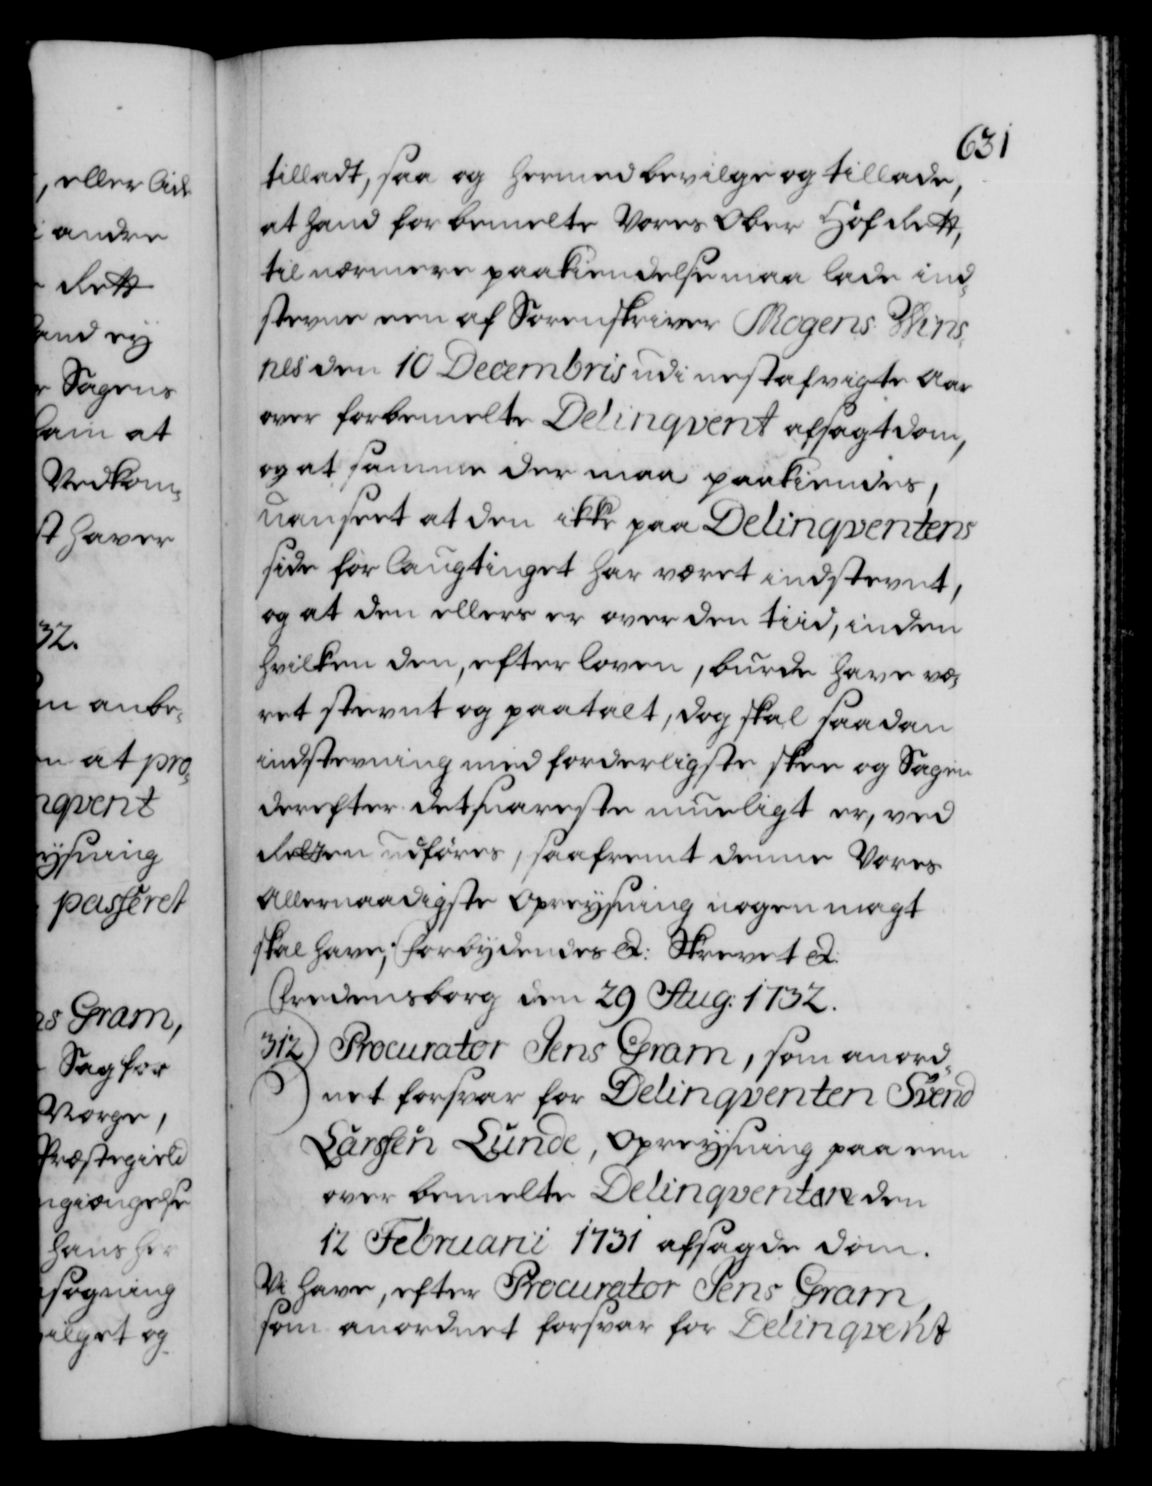 631
tilladt, saa og hermed bevilge og tillade,
at hand for bemelte Vores Ober Hof Rett,
til nærmere paakiendelse maa lade ind-
stevne een af Sorenskriver Mogens Wins-
nes den 10 Decembris udi nestafvigte Aar
over forbemelte Delinqvent afsagt dom,
og at samme der maa paakiendes,
uanseet at den ikke paa Delinqventens
side for Laugtinget har været indstevnt,
og at den ellers er over den tiid, inden
hvilken den, efter loven, burde have væ-
ret stevnt og paatalt, dog skal saadan
indstevning med forderligste skee og Sagen
derefter det snareste mueligt er, ved
Retten udføres, saafremt denne Vores
Allernaadigste Opreysning nogen magt
skal have; Forbydendes &: Skrevet &:
Fredensborg den 29 Aug: 1732.
312) Procurator Jens Gram, som anord-
net forsvar for Delinqventen Svend
Larssen Lunde, Opreysning paa een
over bemelte Delinqventen den
12 Februarii 1731 afsagde dom.
Vi have, efter Procurator Jens Gram,
som anordnet forsvar for Delinqvent
, eller lide
andre
Rett
hand ey
Sagens
ham at
Vedkom-
haver
32.
anbe-
at pro-
nqvent
eysning
passeret
ns Gram,
Sag for
Norge,
Præstegield
hans her
søgning
vilget og